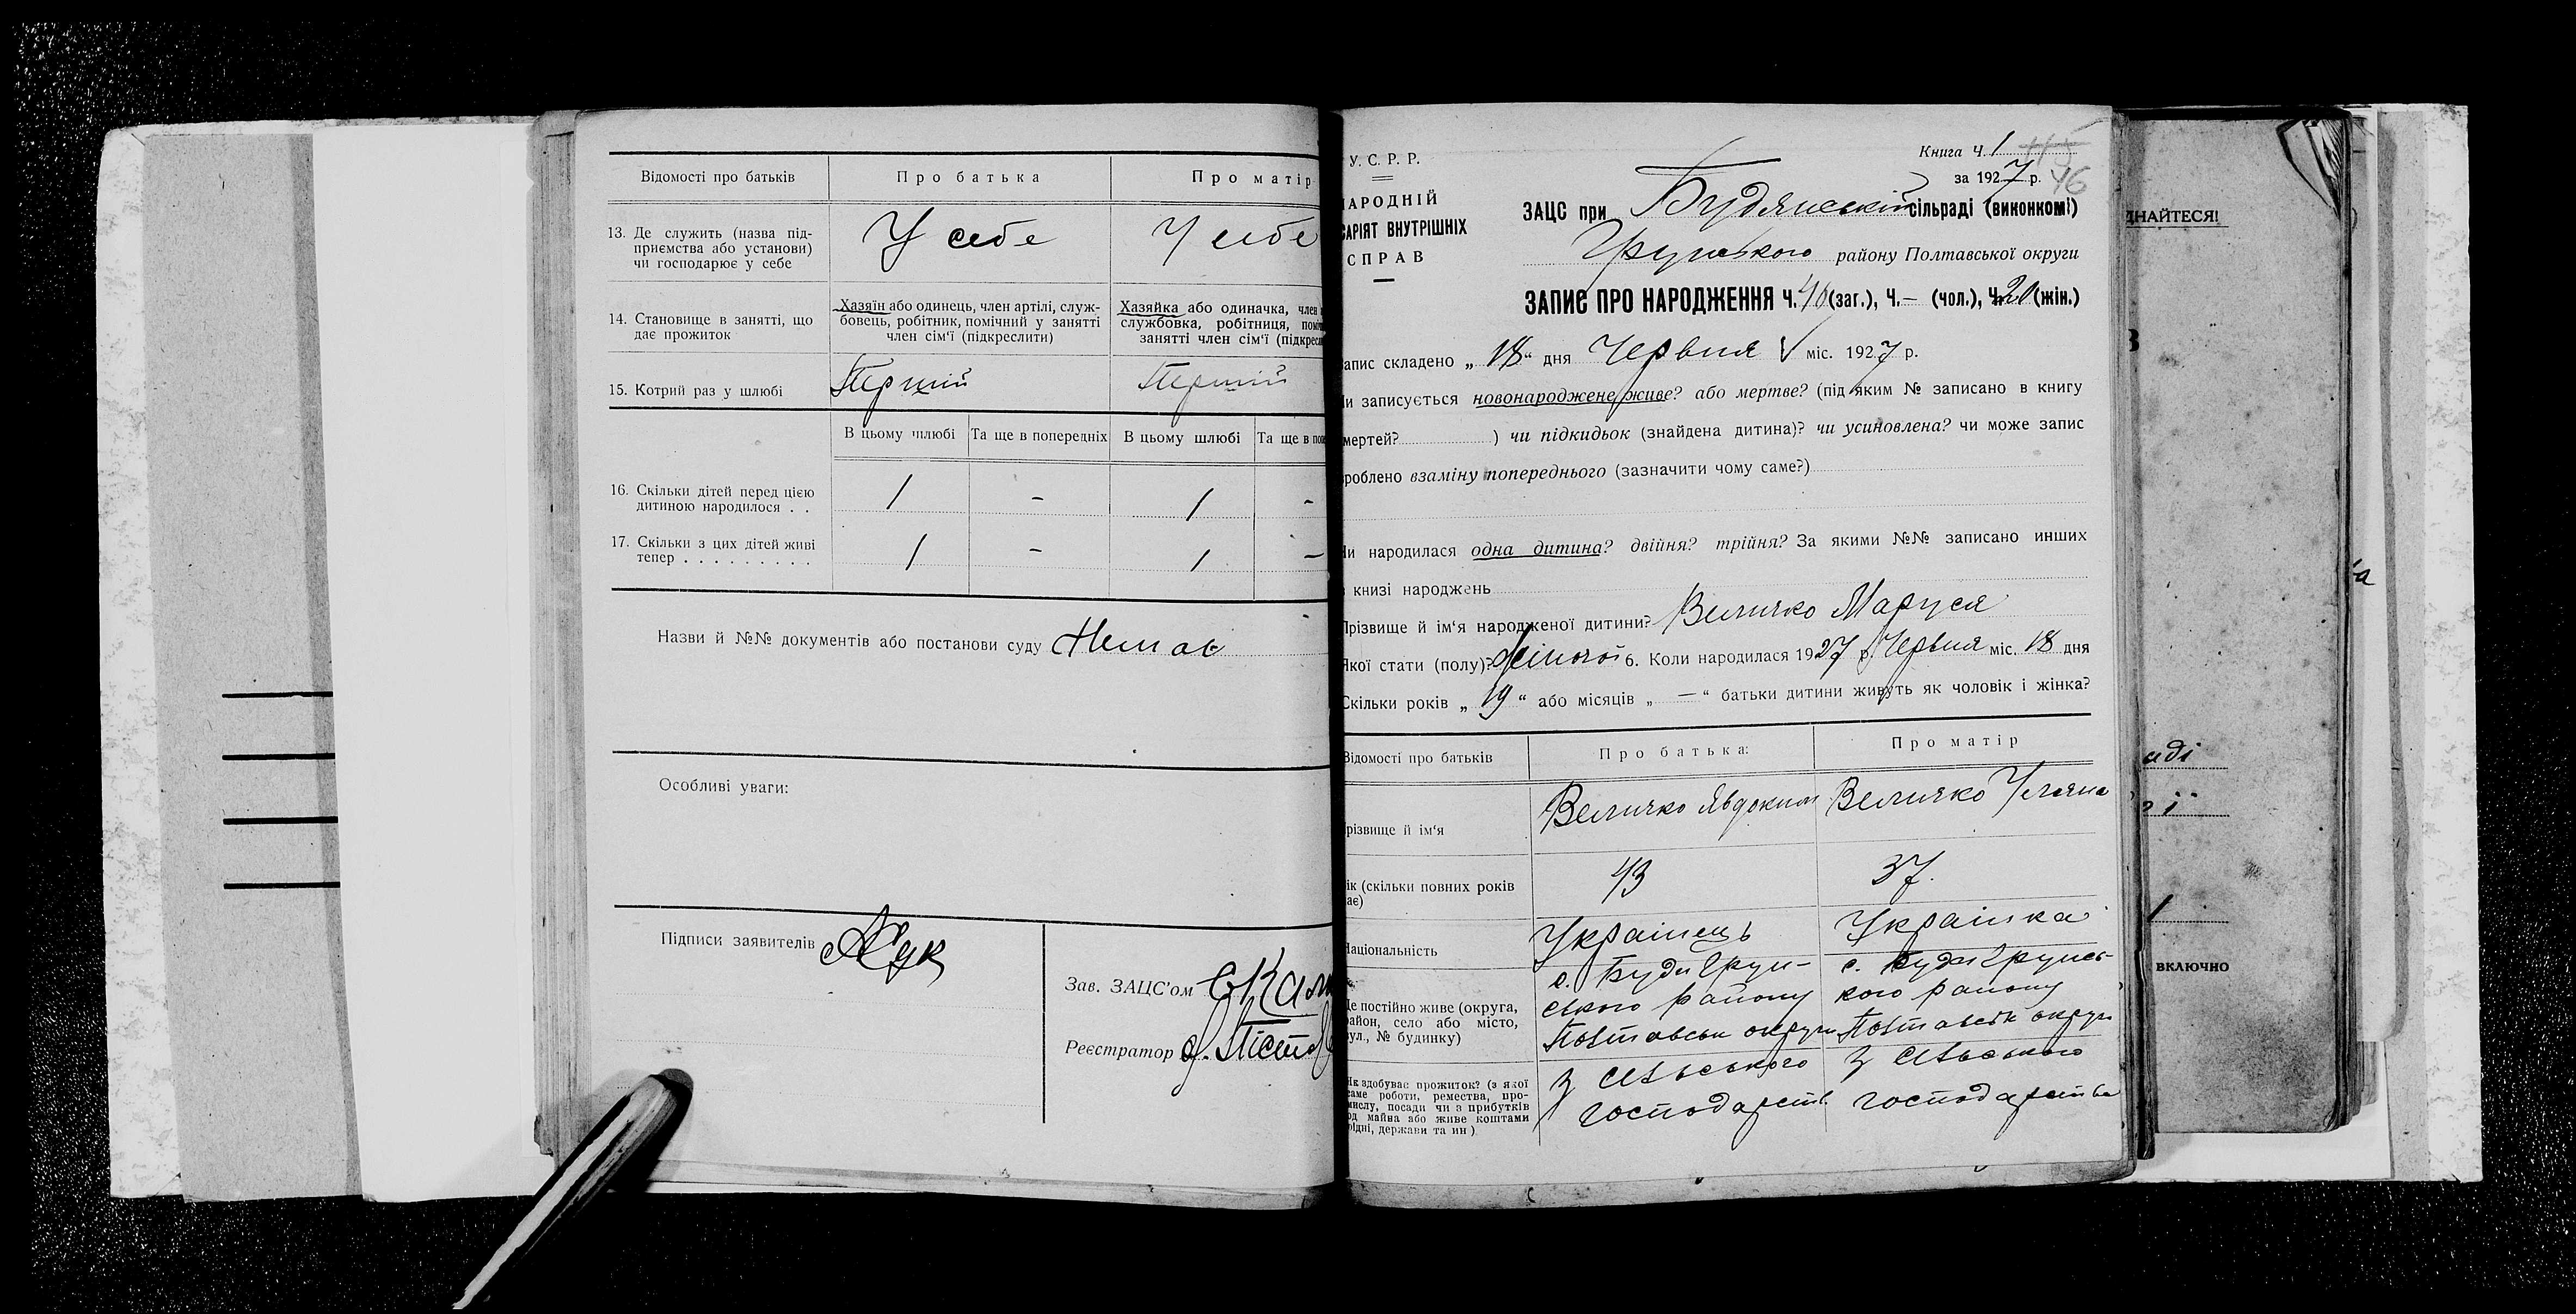 Відомості про батьків
Про батька
Про матір
13. Де служить (назва під-
приємства або установи)
чи господарює у себе
У себе
У себе
14. Становище в занятті, що
дає прожиток
Хазяїн або одинець, член артілі, служ-
бовець, робітник, помічний у занятті
член сім'ї (підкреслити)
Хазяйка або одиначка, член
службовка, робітниця,
занятті член сім'ї
15. Котрий раз у шлюбі
Перший
Перший
В цьому шлюбі
Та ще в попередніх
В цьому шлюбі
Та ще в
16. Скільки дітей перед цією
дитиною народилося . .
1
-
1
-
17. Скільки з цих дітей живі
тепер . . . . . . . . .
1
-
1
-
Назви й №№ документів або постанови суду Немає
Особливі уваги:
Підписи заявителів
Зав. ЗАЦС'ом
Реєстратор
У. С. Р. Р.
АРОДНІЙ
САРІЯТ ВНУТРІШНІХ
СПРАВ
Книга Ч. 1
за 1927 р.
46
ЗАЦС при Будянській сільраді (виконкомі)
Грунського району Полтавської округи
ЗАПИС ПРО НАРОДЖЕННЯ Ч. 46 (заг.), Ч. — (чол.), Ч. (жін.)
апис складено „18“ дня Червня міс. 1927 р.
и записується новонароджене живе? або мертве? (під яким № записано в книгу
мертей? ) чи підкидьок (знайдена дитина)? чи усиновлена? чи може запис
роблено взаміну попереднього (зазначити чому саме?)
и народилася одна дитина? двійня? трійня? За якими №№ записано инших
книзі народжень
Прізвище й ім'я народженої дитини? Величко Маруся
Якої стати (полу)? Жіночої 6. Коли народилася 1927 р. Червня міс. 18 дня
Скільки років „19“ або місяців „—“ батьки дитини живуть як чоловік і жінка?
Відомості про батьків
Про батька:
Про матір
різвище й ім'я
Величко Явдоким
Величко Уляна
ік (скільки повних років
ає)
43
37.
Національність
Українець
Українка
Де постійно живе (округа,
район, село або місто,
вул., № будинку)
с. Буди Грун-
ського району
Полтавськ округи
с. Буди Грунсь-
кого району
Полтавськ округи
Як здобуває прожиток? (з якої
саме роботи, ремества, про-
мислу, посади чи з прибутків
од майна або живе коштами
рідні, держави та ин)
З сільського
господарств.
З сільського
господарства
ДНАЙТЕСЯ!
аді
1
включно